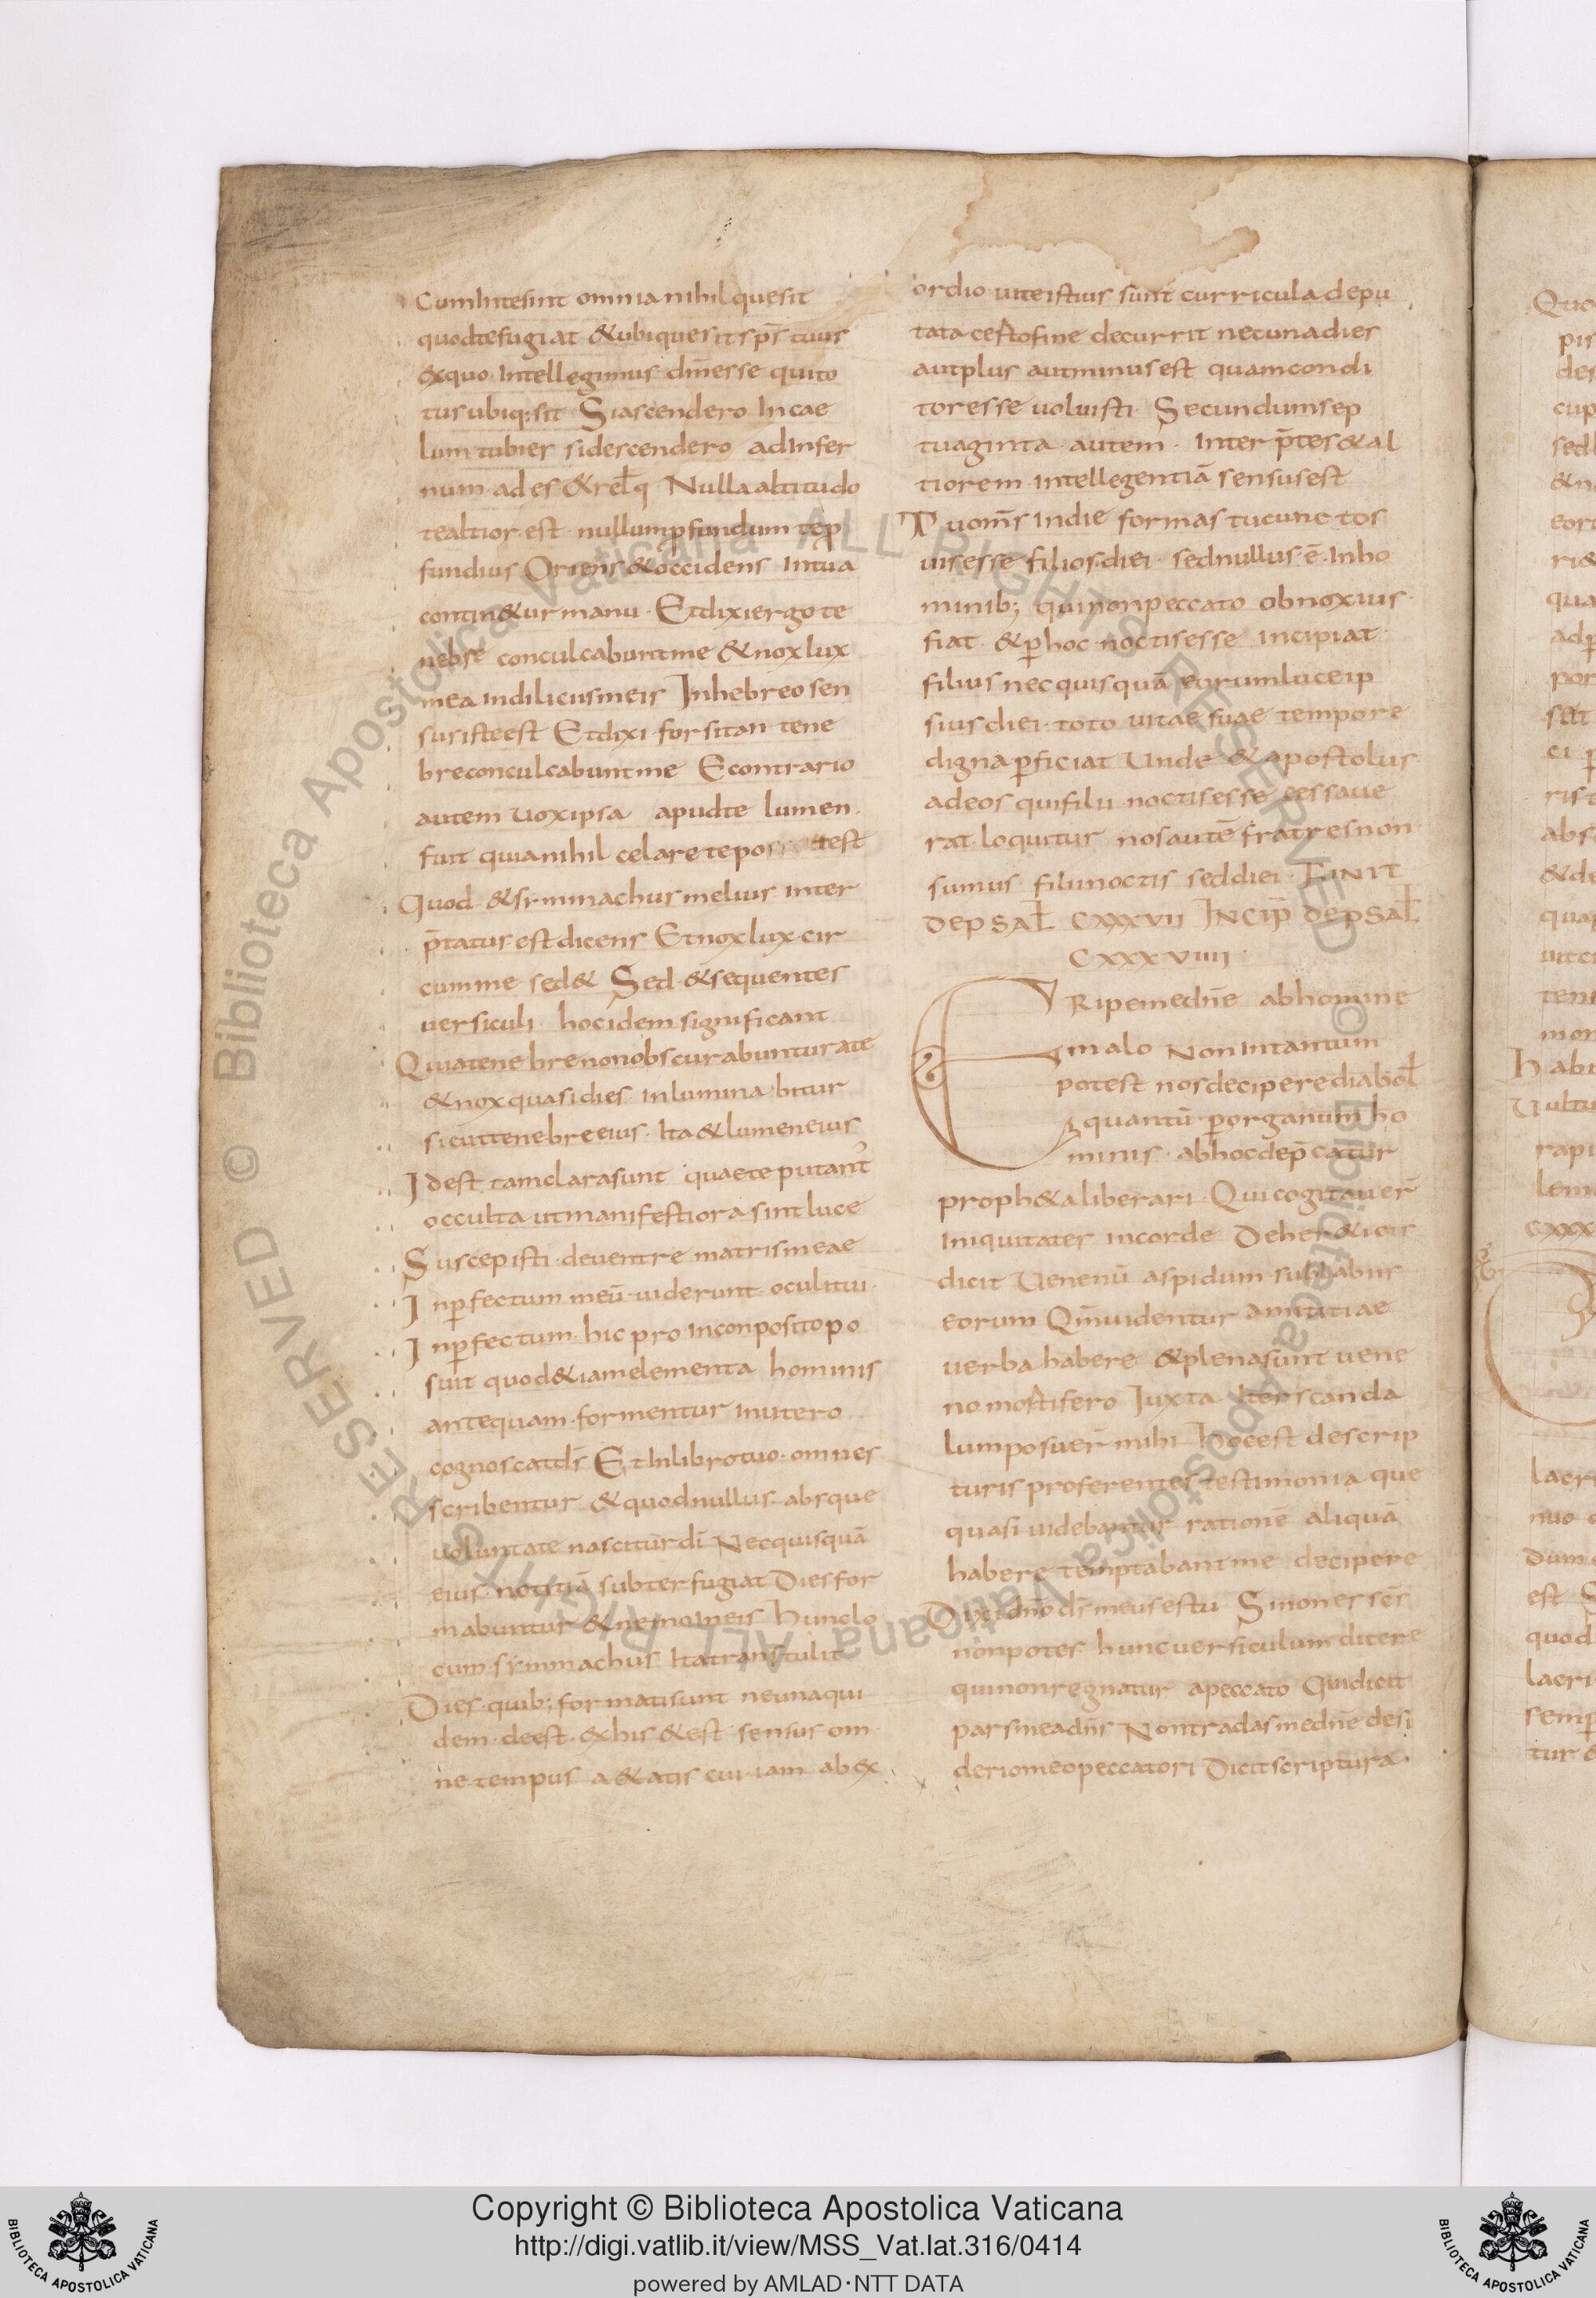 Cumintesint omnia nihil quesit
quodtefugiat &ubiquesitsp̄s tuus
exquo Intellegimus dm̄esse quito
tusubiq;sit Siascendero Incae
lum tubies sidescendero adInfer
num ad es &rel̄q Nullaaltitudo
tealtior est nullump̄fundum tep̄
fundius Oriens &occidens intua
contin&ur manu Etdixiergo te
nebse conculcabuntme &noxlux
mea indilicusmeis Inhebreo sen
susisteest Etdixi forsitan tene
breconculcabuntme Econtrario
autem uoxipsa apudte lumen
fuit quianihil celaretepo test
Quod &simmachus melius inter
p̄tatus est dicens Etnoxlux cir
cumme sed& Sed &sequentes
uersiculi hocidem significant
Quiatenebrenonobscurabunturate
&noxquasidies inluminabitur
sicuttenebreeius Ita&lumeneius
Idest tamclarasunt quaete putant̄
occulta utmanifestiora sintluce
Suscepisti deuentre matrismeae
Inp̱fectum meū uiderunt oculitui
Inp̱fectum hic pro inconpositopo
suit quod&iamelementa hominis
antequam formentur inutero
cognoscatds̄ Et Inlibrotuo omnes
scribentur &quodnullus absque
uoluntate nasciturdī Necquisquā
eius notitiā subterfugiat Diesfor
mabuntur &nemoineis hunclo
cum simmachus Itatranstulit
Dies quib; formatisunt neunaqui
dem deest exhis &est sensus om
ne tempus a&atis cui iam abex
ordio uiteistius sunt curricula depu
tata certofine decurrit necunadies
autplus autminusest quamcondi
toresse uoluisti Secundumsep
tuaginta autem interp̄tes&al
tiorem intellegentiā sensusest
Tuom̄s indie formas tucunctos
uisesse filiosdiei sednullus ē inho
minib; quinonpeccato obnoxius
fiat &p̱hoc noctisesse incipiat
filius necquisquā eorumluceip
siusdiei toto uitae suae tempore
dignap̱ficiat Unde &apostolus
adeos quifilii noctisesse cessaue
rat loquitur nosautē fratresnon
sumus filiinoctis seddiei FINIT
DEPSAL̄ CXXXVII INCIP̄ DEPSAL̄
CXXXVIIII
ERipemedn̄e abhomine
malo Nonintantum
potest nosdeciperediabol̄
quantū p̱organum ho
minis abhocdep̄catur
proph&aliberari Quicogitauer̄
iniquitates incorde Deher&icis
dicit Uenenū aspidum sublabiis
eorum Qm̄uidentur amicitiae
uerba habere &plenasunt uene
no mostifero Iuxta iterscanda
lumposuer̄mihi hocest descrip
turis proferentes testimonia que
quasi uidebantur rationē aliquā
habere temptabantme decipere
Dixidn̄o ds̄meusestu Sinones sēr
nonpotes huncuersiculum dicere
quinonregnatur apeccato Quidicit
parsmeadn̄s Nontradasmedn̄e desi
deriomeopeccatori Dicitscriptura
Copyright © Biblioteca Apostolica Vaticana
http://digi.vatlib.it/view/MSS_Vat.lat.316/0414
powered by AMLAD·NTT DATA